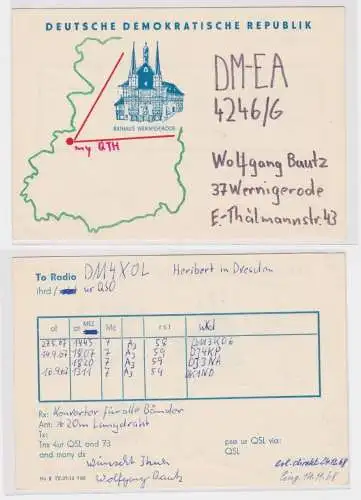 DEUTSCHE DEMOKRATISCHE REPUBLIK
RATHAUS WERNIGERODE
my QTH
DM-EA
4246/G
Wolfgang Bautz
37 Wernigerode
E.-Thälmannstr. 43
To Radio DM4XOL Heribert in Dresden
ihrd / ur QSO
at at MEZ Mc rst wkd
1445 7 A3 58
14.9.67 1807 7 A3 59 DJ4KP
1820 7 A3 59 DJ3NA
1311 7 A3 59
Rx: Konverter für alle Bänder
Ant: 20m Langdraht
Tx:
Tnx 4ur QSL and 73
and many dx
wünscht Ihnen
Wolfgang Bautz
pse ur QSL via:
QSL